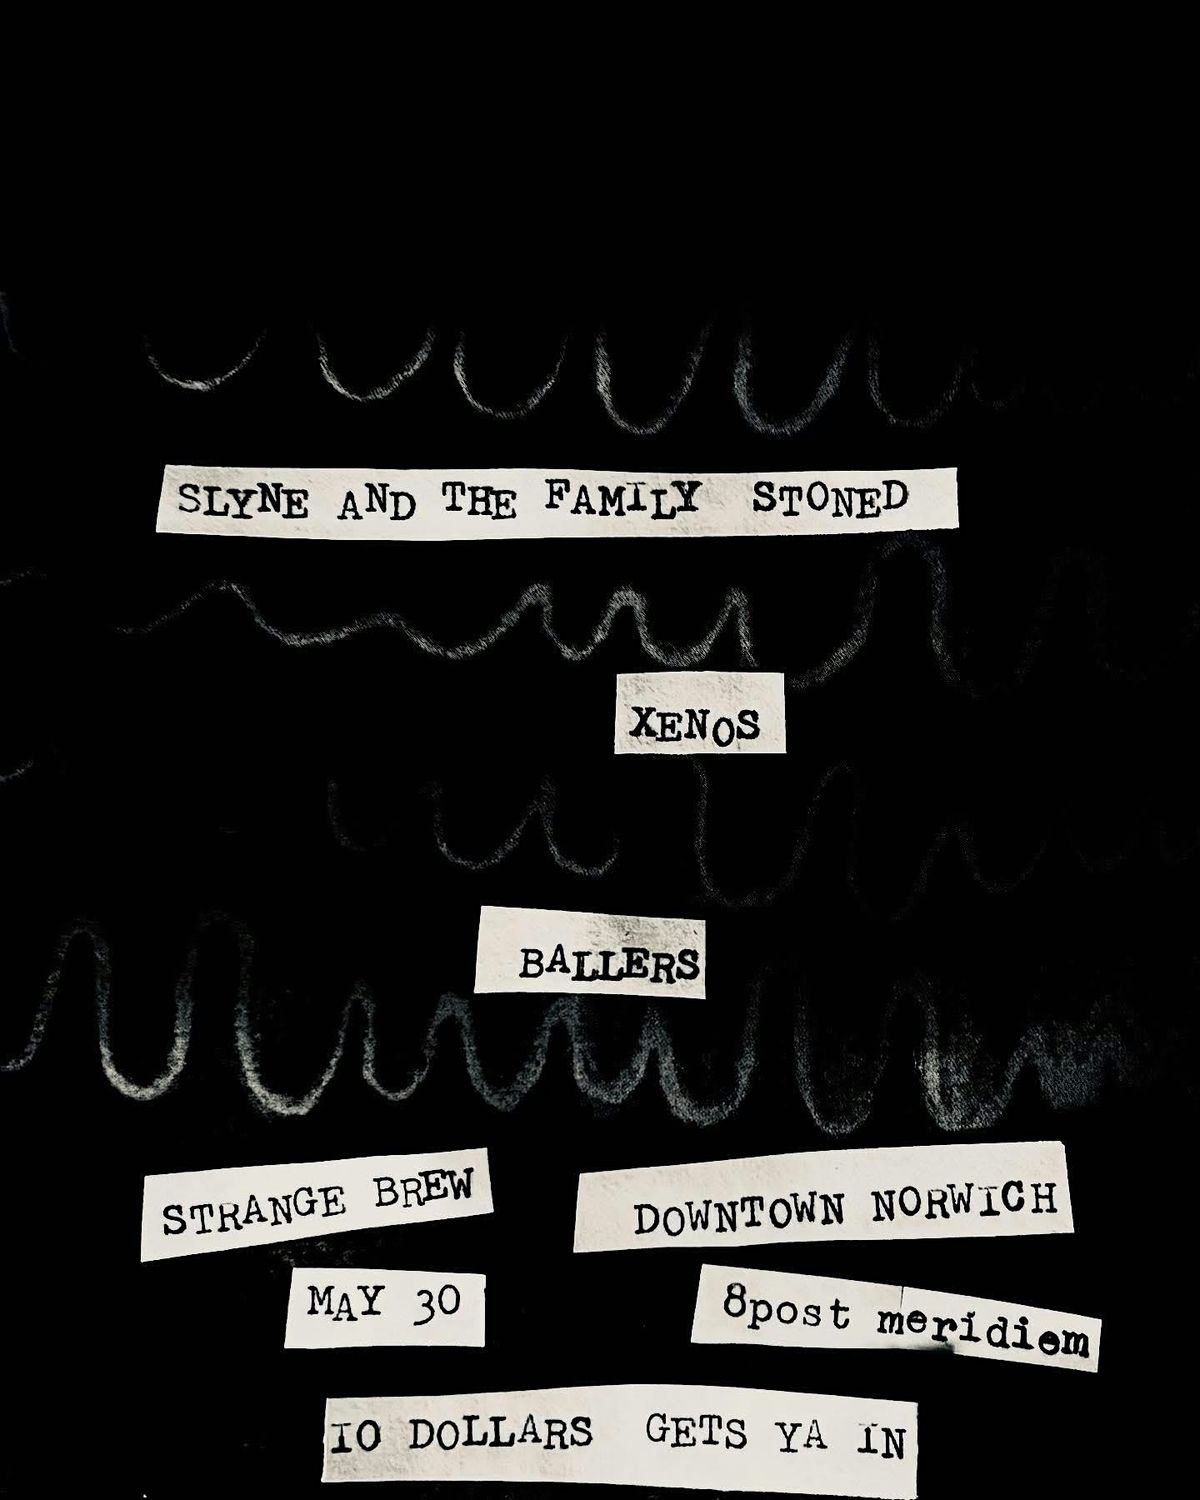 SLYNE AND THE FAMILY STONED
XENOS
BALLERS
STRANGE BREW
DOWNTOWN NORWICH
MAY 30
8post meridiem
10 DOLLARS GETS YA IN